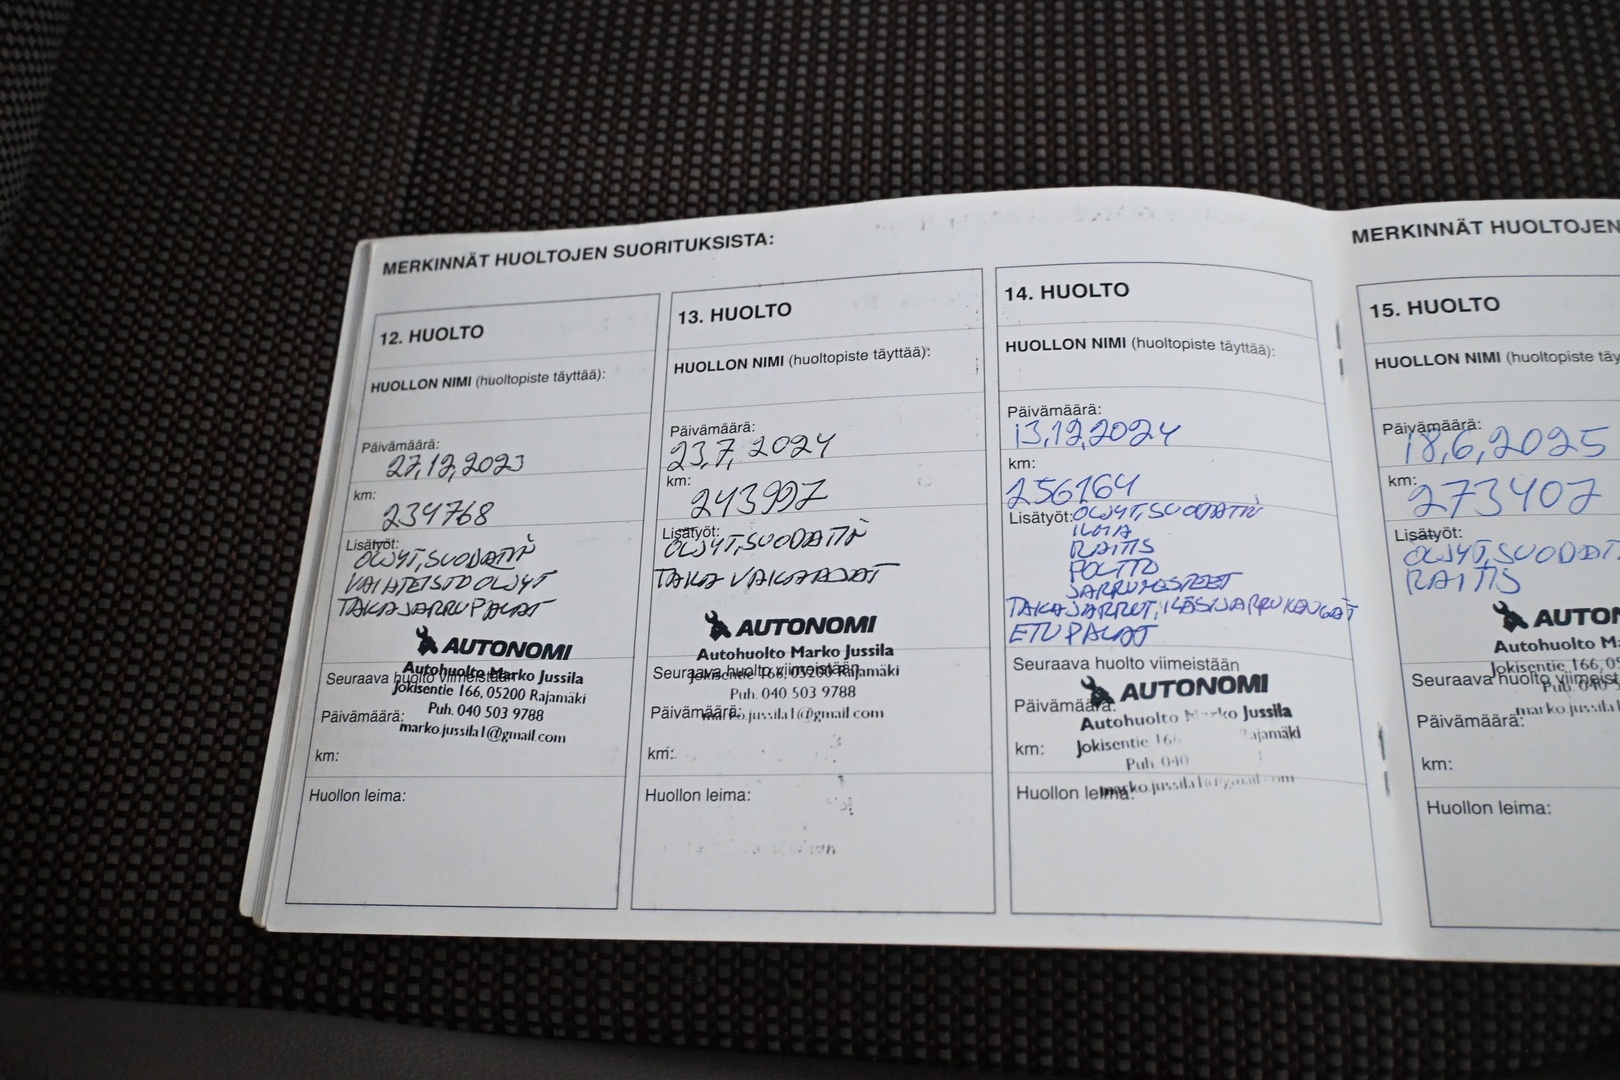 MERKINNÄT HUOLTOJEN SUORITUKSISTA:
12. HUOLTO
HUOLLON NIMI (huoltopiste täyttää):
Päivämäärä:
27,12,2023
km:
234768
Lisätyöt:
ÖLJYT,SUODATIN
VAIHTEISTO ÖLJYT
TAKAJARRUPALAT
AUTONOMI
Autohuolto Marko Jussila
Seuraava huolto viimeistään
Jokisentie 166, 05200 Rajamäki
Puh. 040 503 9788
Päivämäärä:
marko.jussila1@gmail.com
km:
Huollon leima:
13. HUOLTO
HUOLLON NIMI (huoltopiste täyttää):
Päivämäärä:
23,7, 2024
km:
243997
Lisätyöt:
ÖLJYT,SUODATIN
TAKA VAKAAJAT
AUTONOMI
Autohuolto Marko Jussila
Seuraava huolto viimeistään
Jokisentie 166, 05200 Rajamäki
Puh. 040 503 9788
Päivämäärä:
marko.jussila1@gmail.com
km:
Huollon leima:
14. HUOLTO
HUOLLON NIMI (huoltopiste täyttää):
Päivämäärä:
13,12,2024
km:
256164
Lisätyöt: ÖLJYT,SUODATIN
ILMA
RAITIS
POLTTO
JARRUNESTEET
TAKAJARRUT, KÄSIJARRUKENGÄT
ETUPALAT
Seuraava huolto viimeistään
AUTONOMI
Päivämäärä:
Autohuolto Marko Jussila
km:
Jokisentie 166 Rajamäki
Puh. 040
Huollon leima:
marko.jussila1@gmail.com
MERKINNÄT HUOLTOJEN
15. HUOLTO
HUOLLON NIMI (huoltopiste
Päivämäärä:
18,6,2025
km:
273407
Lisätyöt:
ÖLJYT,SUODAT
RAITIS
AUTONO
Autohuolto
Jokisentie 166,
Seuraava huolto
Puh.
Päivämäärä:
marko.jussila1
km:
Huollon leima: